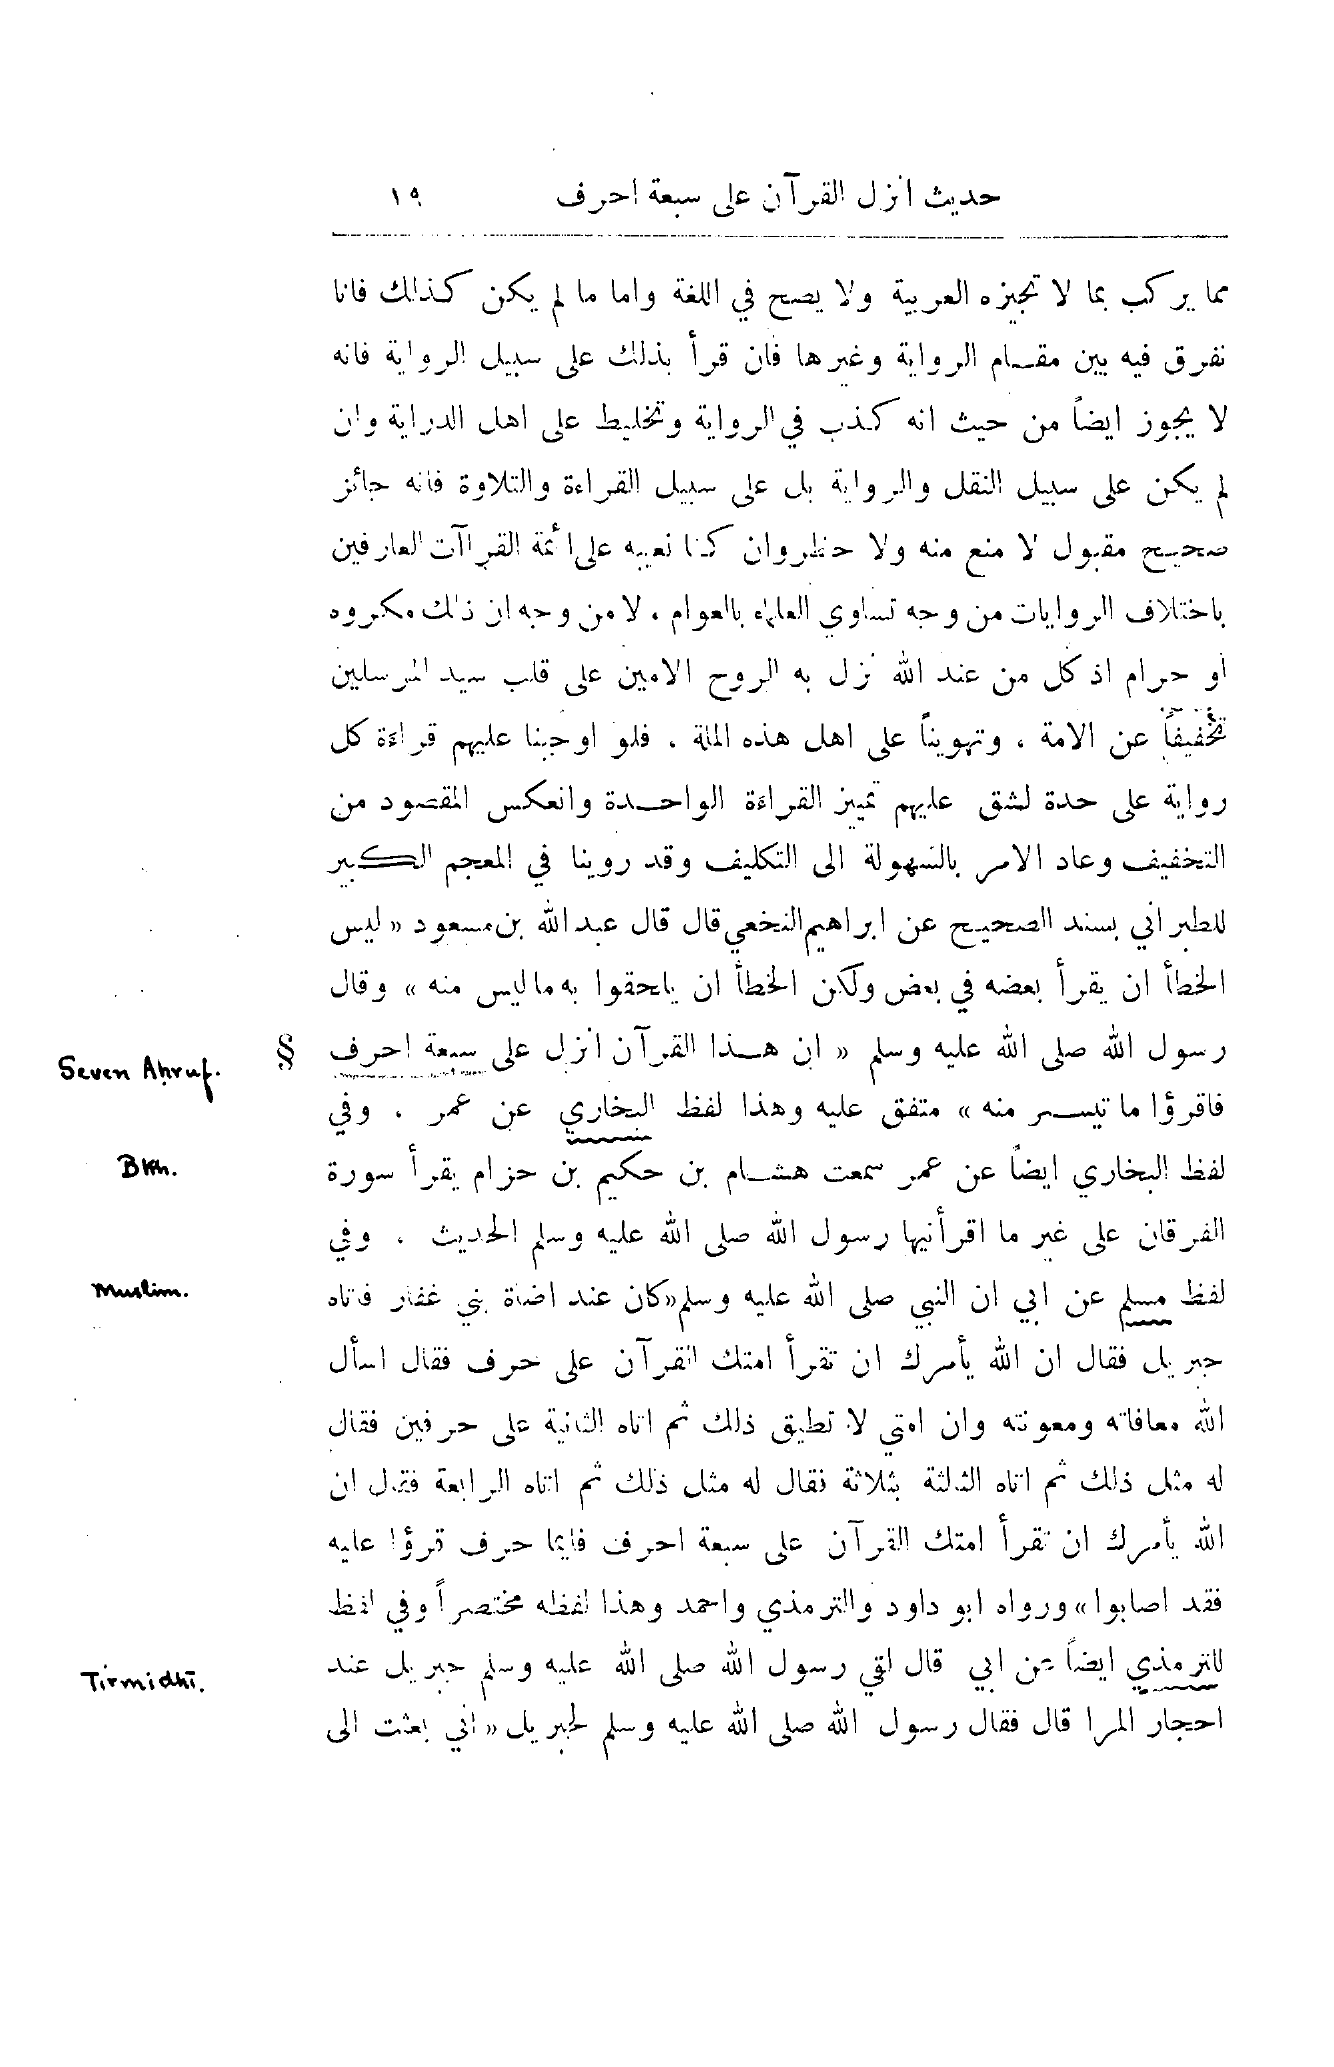 حديث انزل القرآن على سبعة احرف ١٩
مما يركب بما لا تجيزه العربية ولا يصح في اللغة واما ما لم يكن كذلك فانا
نفرق فيه بين مقام الرواية وغيرها فان قرأ بذلك على سبيل الرواية فانه
لا يجوز ايضاً من حيث انه كذب في الرواية وتخليط على اهل الدراية وان
لم يكن على سبيل النقل والرواية بل على سبيل القراءة والتلاوة فانه جائز
صحيح مقبول لا منع منه ولا حظر وان كنا نعيبه على ائمة القراآت العارفين
باختلاف الروايات من وجه تساوي العلماء بالعوام ، لا من وجه ان ذلك مكروه
او حرام اذ كل من عند الله نزل به الروح الامين على قلب سيد المرسلين
تخفيفاً عن الامة ، وتهويناً على اهل هذه الملة ، فلو اوجبنا عليهم قراءة كل
رواية على حدة لشق عليهم تمييز القراءة الواحدة وانعكس المقصود من
التخفيف وعاد الامر بالسهولة الى التكليف وقد روينا في المعجم الكبير
للطبراني بسند الصحيح عن ابراهيم النخعي قال قال عبد الله بن مسعود « ليس
الخطأ ان يقرأ بعضه في بعض ولكن الخطأ ان يلحقوا به ما ليس منه » وقال
رسول الله صلى الله عليه وسلم « ان هذا القرآن انزل على سبعة احرف § Seven Aḥruf.
فاقرؤا ما تيسر منه » متفق عليه وهذا لفظ البخاري عن عمر ، وفي
لفظ البخاري ايضاً عن عمر سمعت هشام بن حكيم بن حزام يقرأ سورة Bkh.
الفرقان على غير ما اقرأنيها رسول الله صلى الله عليه وسلم الحديث ، وفي
لفظ مسلم عن ابي ان النبي صلى الله عليه وسلم «كان عند اضاة بني غفار فاتاه Muslim.
جبريل فقال ان الله يأمرك ان تقرأ امتك القرآن على حرف فقال اسأل
الله معافاته ومعونته وان امتي لا تطيق ذلك ثم اتاه الثانية على حرفين فقال
له مثل ذلك ثم اتاه الثالثة بثلاثة فقال له مثل ذلك ثم اتاه الرابعة فقال ان
الله يأمرك ان تقرأ امتك القرآن على سبعة احرف فايما حرف قرؤا عليه
فقد اصابوا » ورواه ابو داود والترمذي واحمد وهذا لفظه مختصراً وفي لفظ
للترمذي ايضاً عن ابي قال لقي رسول الله صلى الله عليه وسلم جبريل عند Tirmidhī.
احجار المرا قال فقال رسول الله صلى الله عليه وسلم لجبريل « اني بعثت الى